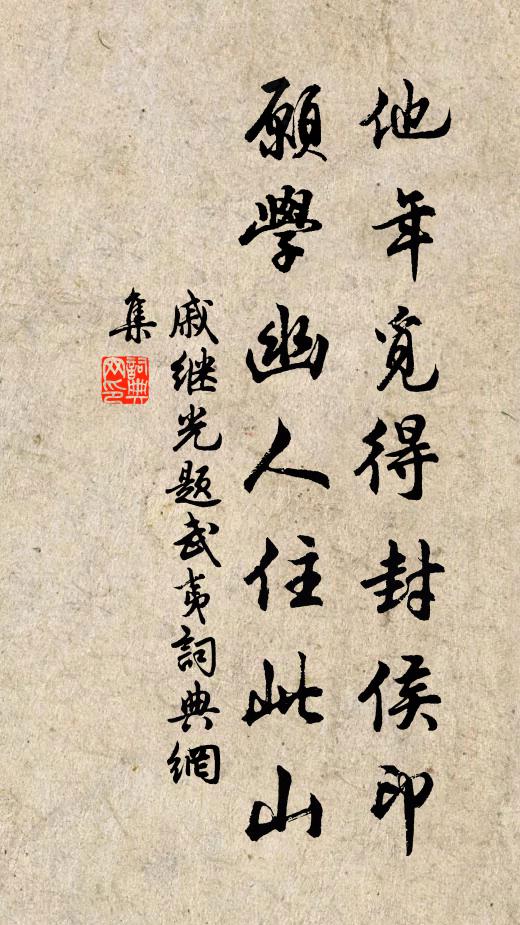 他年覓得封侯印
願學幽人住此山
戚继光题武夷詞典網
集
詞典网印